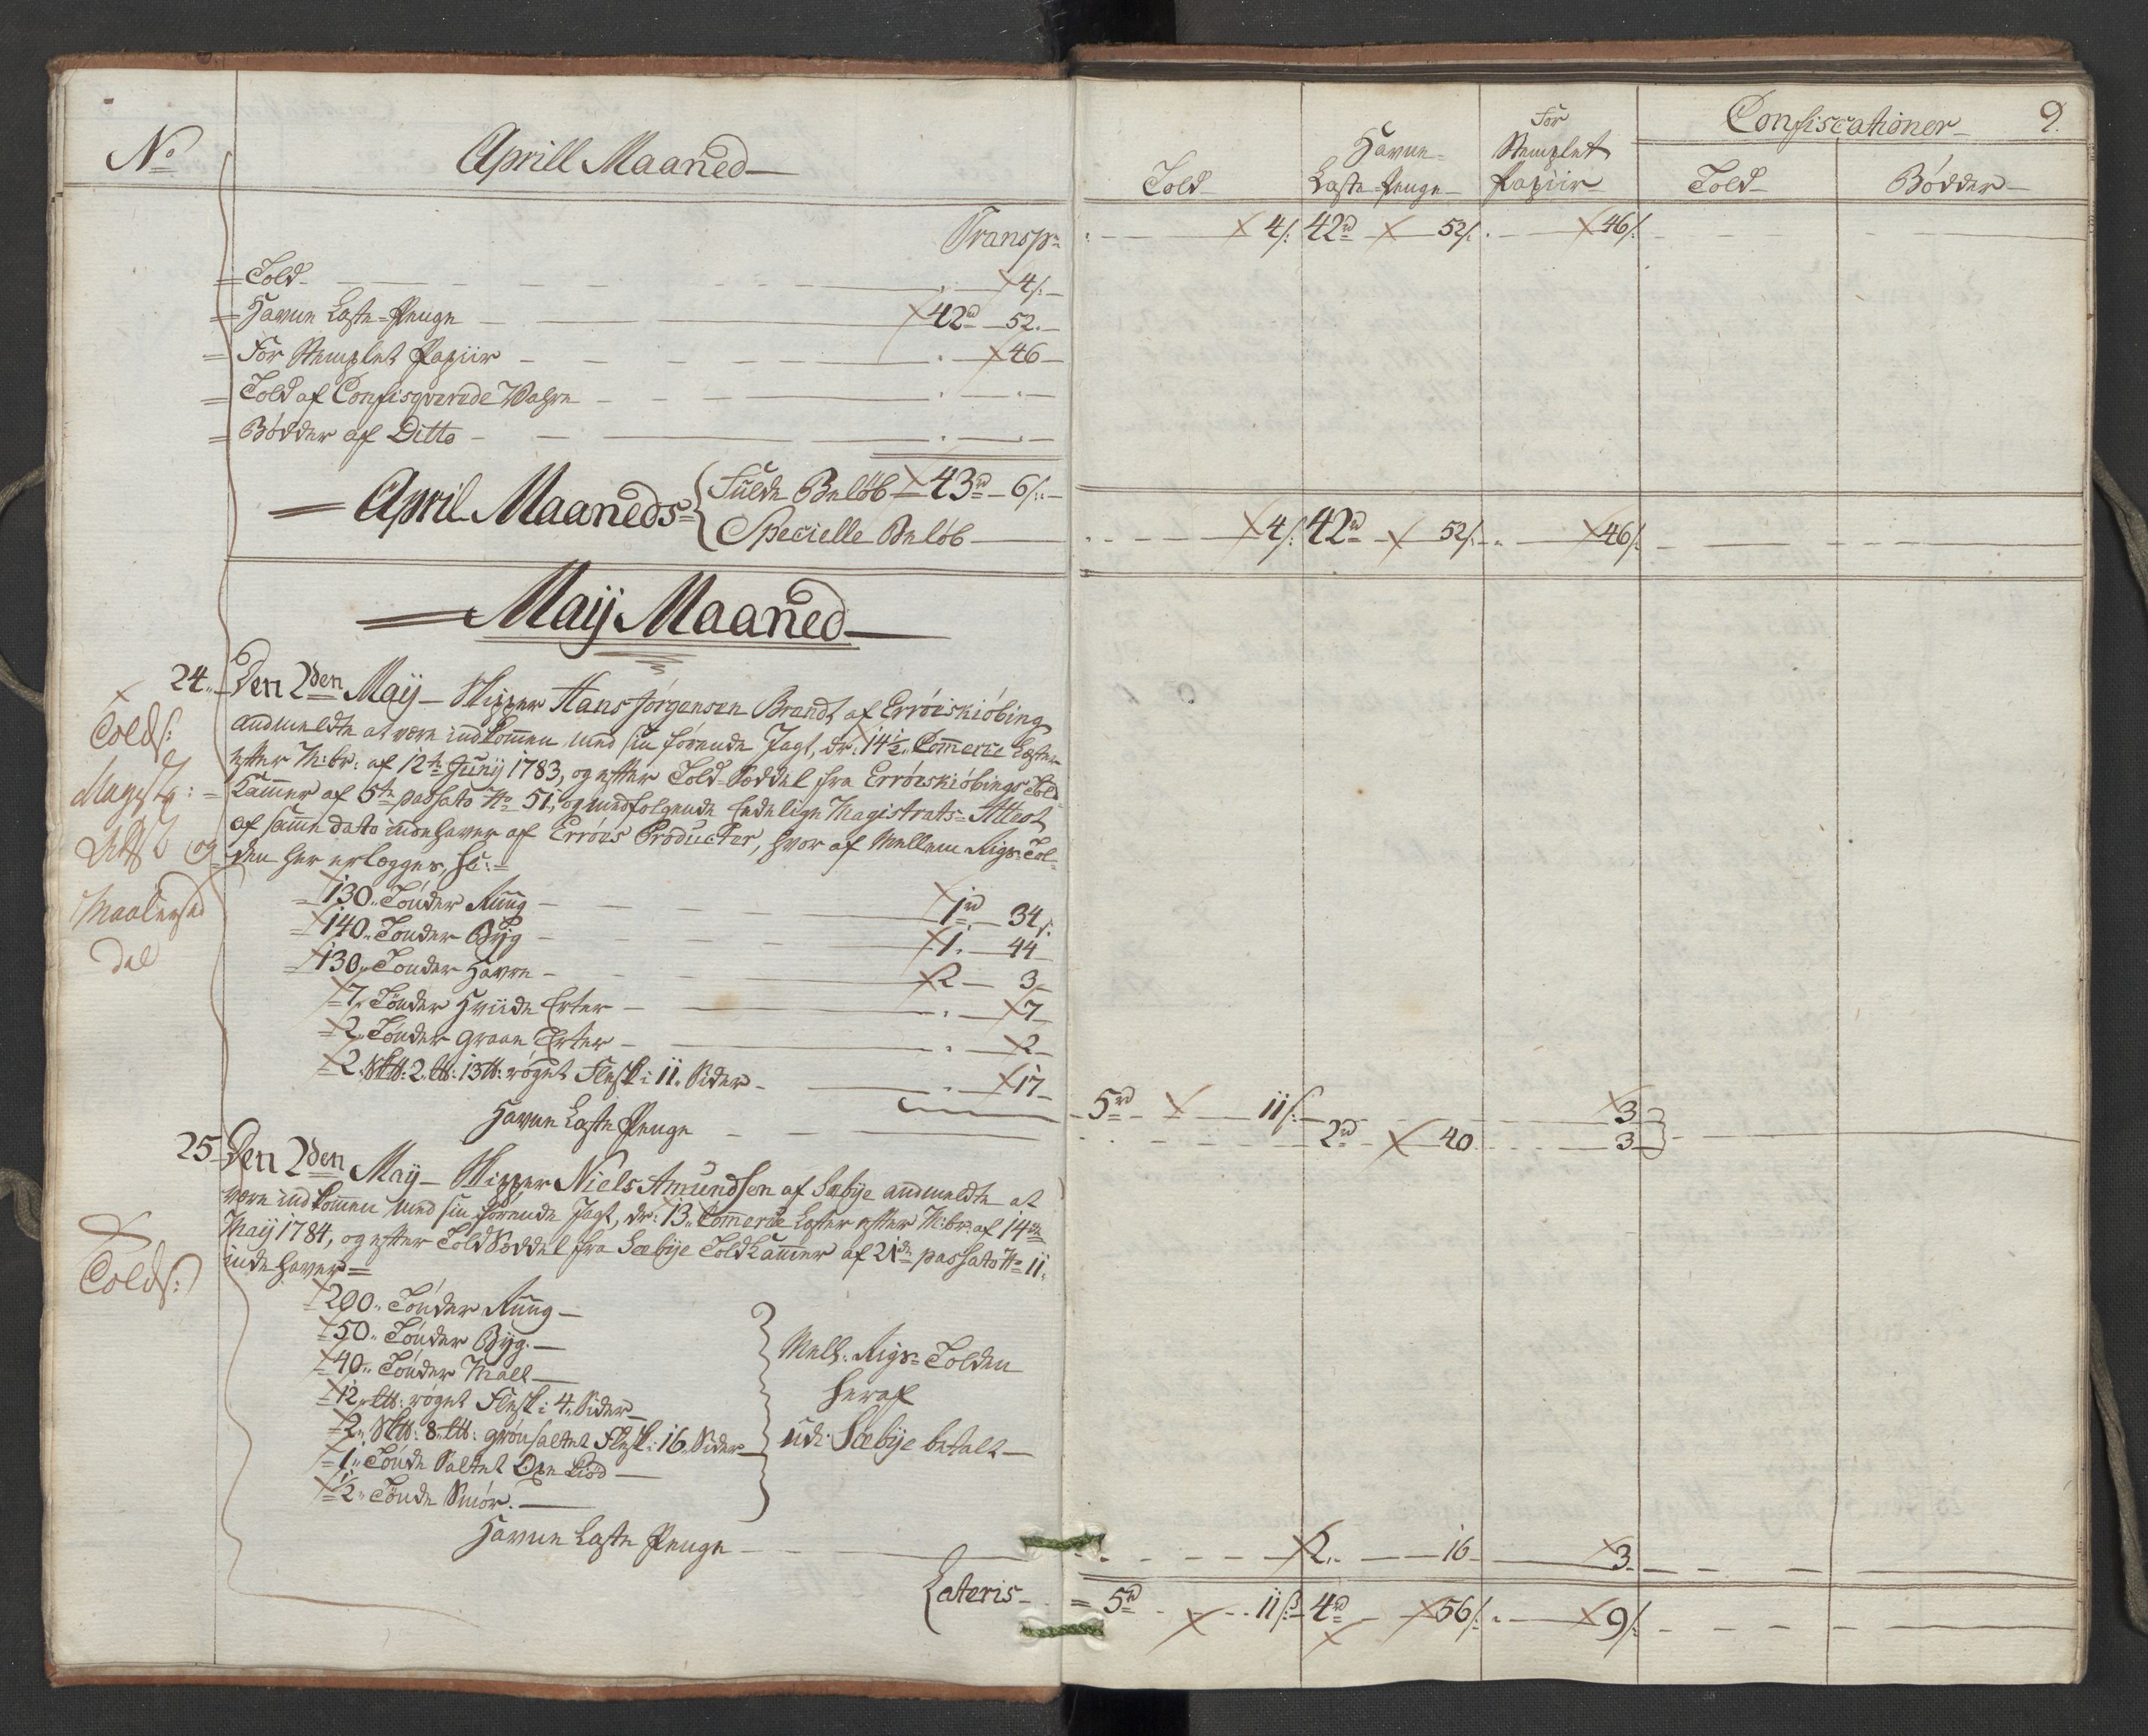 No
Aprill Maaned
Transp:
Told 4/:
Havne Laste-Penge 42rd 52.
For Stemplet Papiir 46
Told af Confisqverede Wahre
Bødder af Ditto
April Maaneds
Fulde Beløb 43rd 6/:
Specielle Beløb
Maij Maaned
24. Den 2den Maij Skipper Hans Jørgensen Brandt af Erröeskiöbing
andmeldte at være indkommen med sin førende Jagt, dr: 14½ Commerce Læster
efter M:br: af 12te Junij 1783, og efter Told-Seddel fra Erröeskiöbings Told-
Kammer af 5te passato No 51, og medfølgende Eedelige Magistrats-Attest
af samme dato indehaver af Erröes Producter, hvor af Mellem Rigs Tol-
den her erlægges, sc:
130 Tönder Rúúg 1rd 34/:
140 Tönder Býg 1. 44
130 Tönder Havre 2 3
7 Tönder Hviide Erter 7
2 Tönder graae Erter 2
2 Sk℔: 2 L℔: 13℔: röget Flesk i 11 Sider 17
Havne Laste Penge
Told/:
Magist:
Attest og
Maalersed
del
25 Den 2den Maij Skipper Niels Amundsen af Sæbÿe andmeldte at
være indkommen med sin førende Jagt, dr: 13 Commerce Læster efter M:br: af 14de
Maij 1784, og efter Told Seddel fra Sæbÿe Told Kammer af 21de passato No 11
indehaver
200 Tönder Rúúg
50 Tönder Býg
40 Tönder Malt
12 L℔: röget Flesk i 4 Sider
2 Sk℔: 8 L℔: grönsaltet Flesk i 16 Sider
1 Tönde Saltet Oxe Kiöd
½ Tönde Smör
Mell: Rigs Tolden
heraf
udi Sæbÿe betalt
Told/:
Havne Laste Penge
Lateris
Told
Havne-
Laste-Penge
For
Stemplet
Papiir
Confiscationer 9.
Told
Bødder
4/: 42rd 52/: 46/:
4/: 42rd 52/: 46/:
5rd 11/: 3
2rd 40 3
2 16 3
5rd 11/: 4rd 56/: 9/: